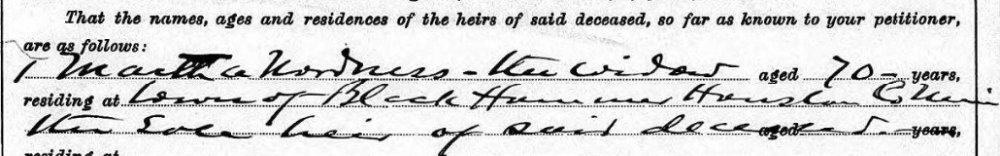 That the names, ages and residences of the heirs of said deceased, so far as known to your petitioner,
are as follows:
1 Martha Nordness - the widow aged 70 - years,
residing at town of Black Hammer Houston Co. Minn
the sole heir of said deceased. aged years,
residing at